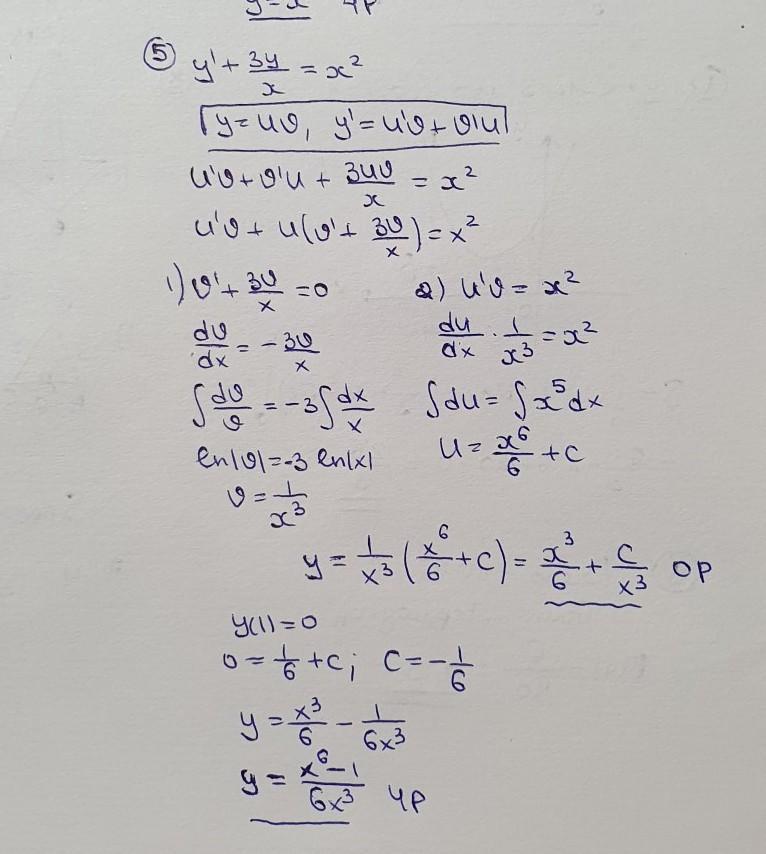 y=x ЧР
⑤ y' + 3y/x = x²
y=uv, y'=u'v+v'u
u'v+v'u + 3uv/x = x²
u'v + u(v' + 3v/x) = x²
1) v' + 3v/x = 0
dv/dx = -3v/x
∫dv/v = -3∫dx/x
ln|v|=-3 ln|x|
v = 1/x³
2) u'v = x²
du/dx · 1/x³ = x²
∫du = ∫x⁵dx
u = x⁶/6 + C
y = 1/x³ (x⁶/6 + C) = x³/6 + C/x³ ОР
y(1)=0
0 = 1/6 + C; C = -1/6
y = x³/6 - 1/6x³
y = x⁶-1/6x³ ЧР